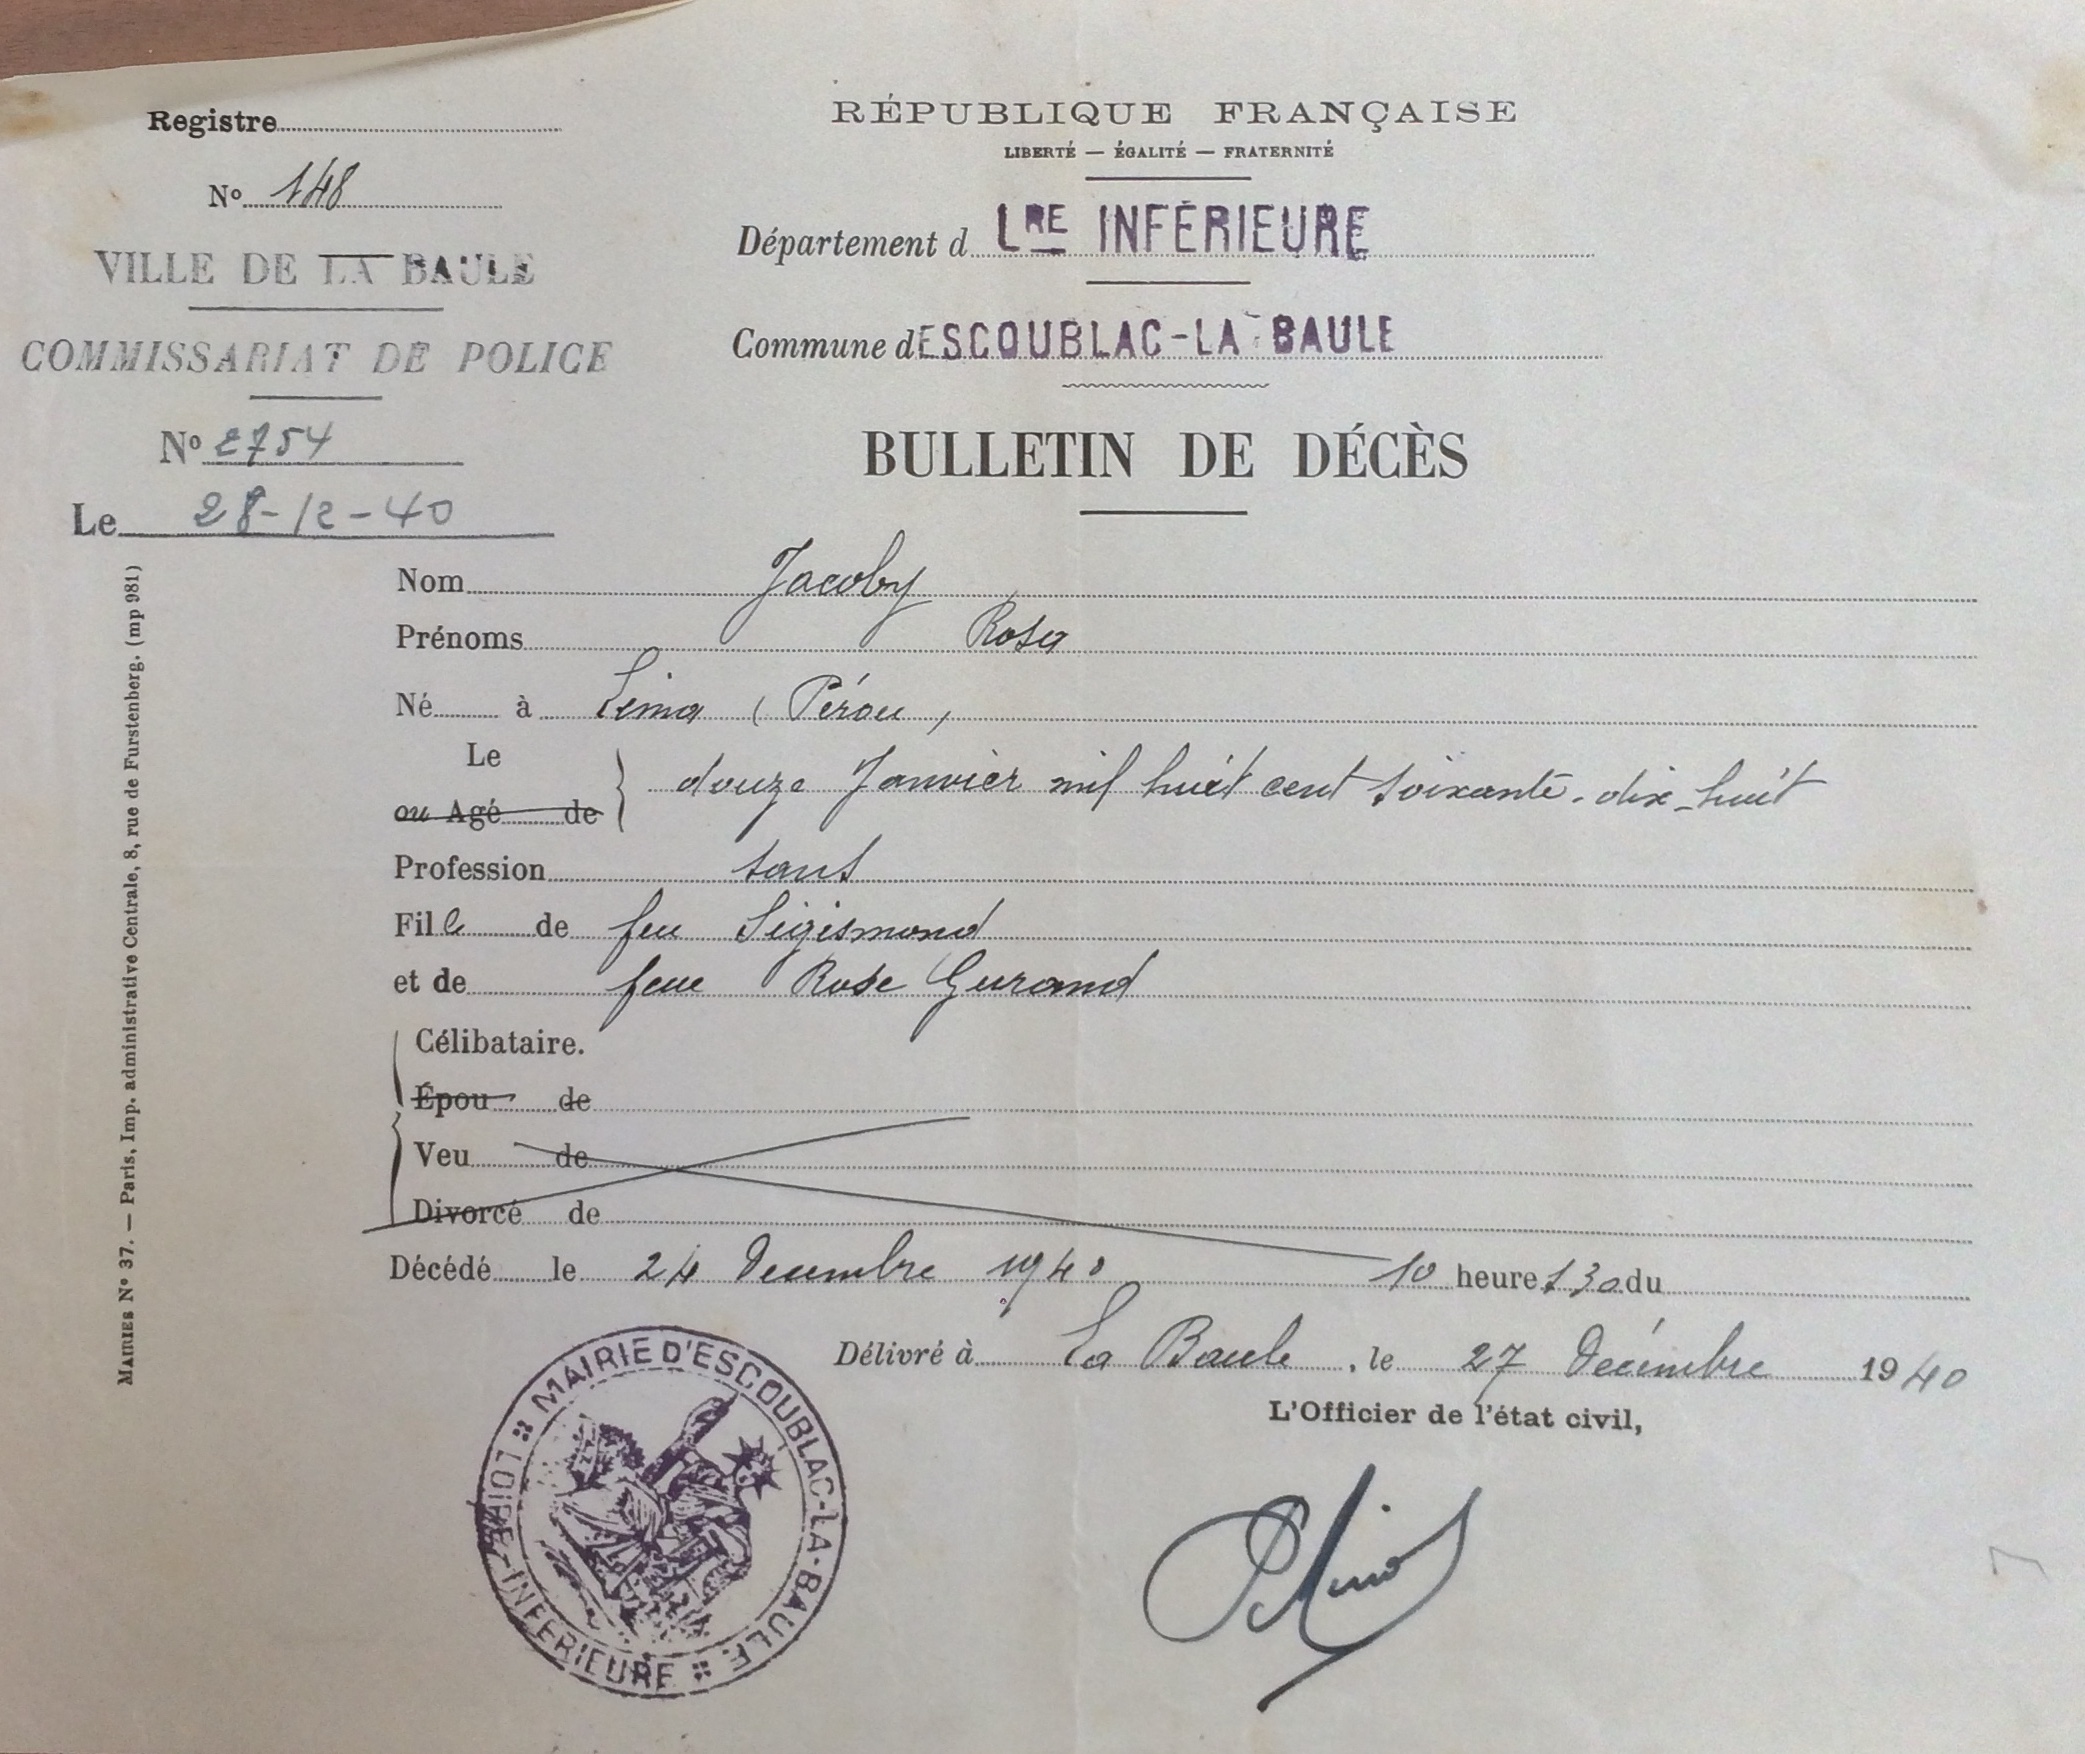 Registre
Nº 148
VILLE DE LA BAULE
COMMISSARIAT DE POLICE
Nº 2754
Le 28-12-40
RÉPUBLIQUE FRANÇAISE
LIBERTÉ — ÉGALITÉ — FRATERNITÉ
Département d LRE INFÉRIEURE
Commune d ESCOUBLAC-LA BAULE
BULLETIN DE DÉCÈS
Nom Jacoby
Prénoms Rosa
Né à Lima (Pérou)
Le
ou Agé de
douze Janvier mil huit cent soixante-dix-huit
Profession sans
Fille de feu Sigismond
et de feue Rose Gurand
Célibataire.
Épou de
Veu de
Divorcé de
Décédé le 24 Decembre 1940 10 heures 30 du
Délivré à La Baule, le 27 Décembre 1940
L'Officier de l'état civil,
MAIRIE D'ESCOUBLAC-LA-BAULE
LOIRE-INFÉRIEURE
MAIRIES Nº 37. — Paris, Imp. administrative Centrale, 8, rue de Furstenberg. (mp 981)